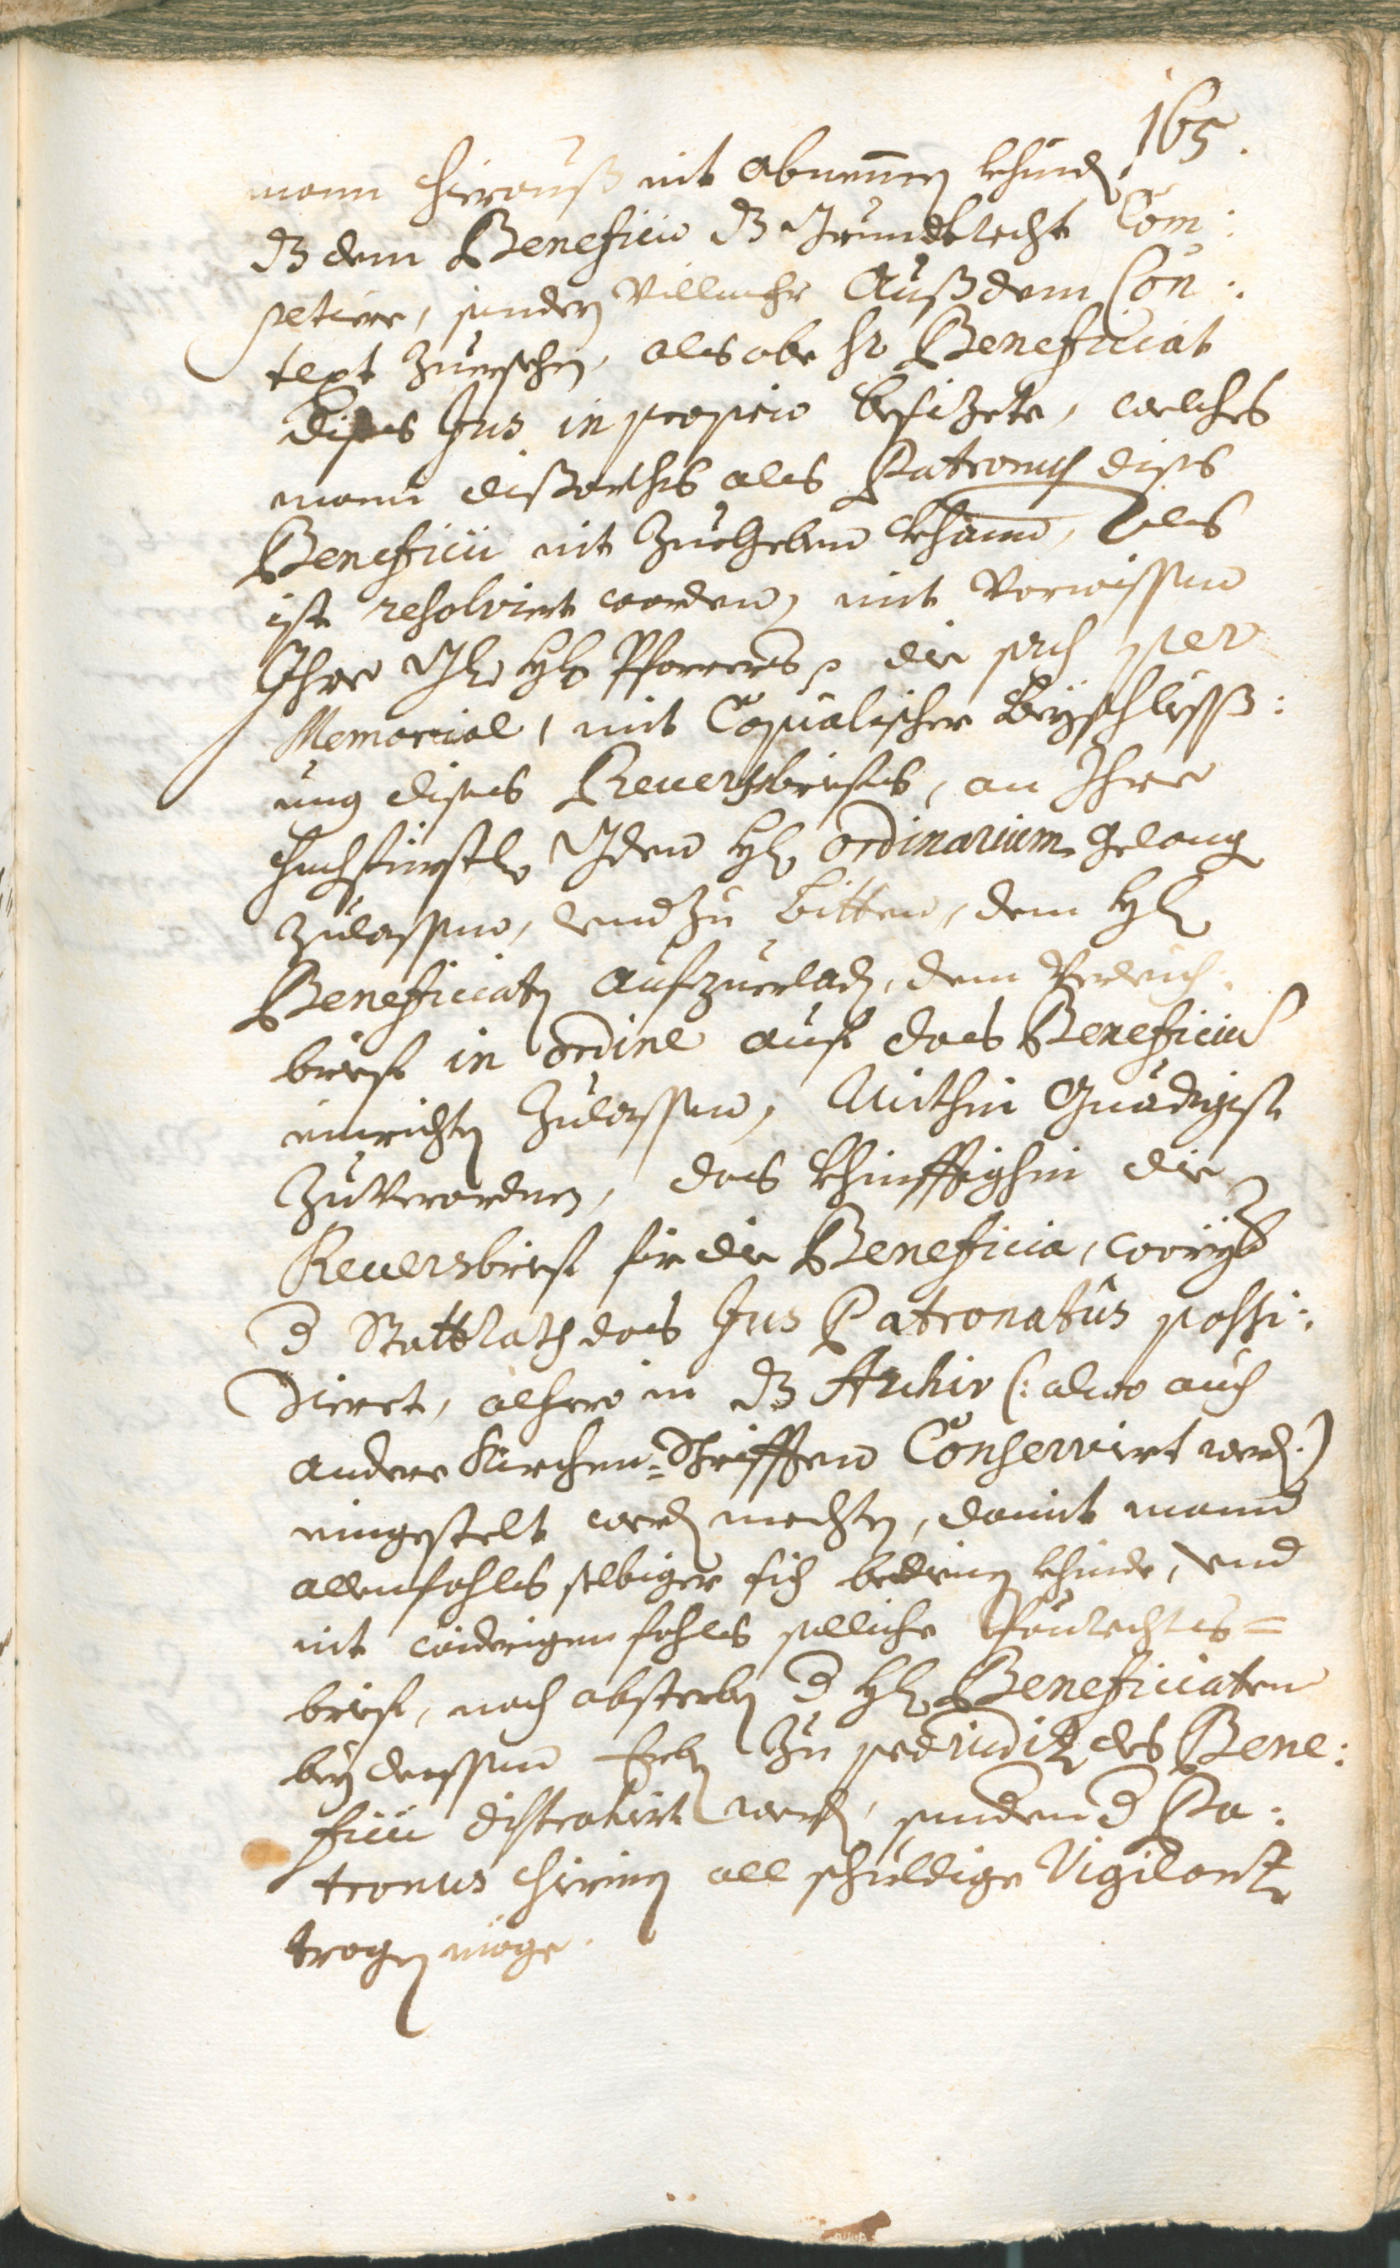 165.
mann hierauß nit abnemmen khindt,
dz dem Beneficio dz Grundtrecht Com:
petiere, sondern villmehr Außdem Con:
text zuersehen, als obe hr Beneficiat
dises Jus in proprio besizete, welches
mann dißorths als Patronus diss
Beneficii nit zuegeben khann, Als
ist resolvirt worden, mit Vorwissen
Ihro Hl. Pfarrers, die sach per
Memorial, mit Copialischer Beyschliess:
ung dises Reuersbriefs, an Ihro
Hochfürstl. Gden Hl. ordinarium gelang
zulassen, vnd zu bitten, dem Hl.
Beneficiaten aufzuerladen, dem
brief in ordine auf das Beneficium
einrichten zulassen, Mithin Gnädigist
zuverordnen, das khinfftighin die
Reuersbrief für die Beneficia, woriber
d Stattrath das Jus Patronatus possi:
dieret, alhero in dz Archiv (: alwo auch
andere Kirchen-Schrifften Conservirt werden :)
eingestelt werden mechten, damit mann
allenfahls selbiger sich bedienen khinde, vnd
nit widrigenfahls solliche Paurechts=
brief, nach absterben d Hl. Beneficiaten
bey dessen Erben zu prejudiz des Bene:
ficii distrahirt werden, sondern d Pa:
tronus hierinen all schuldige Vigilanz
tragen möge.